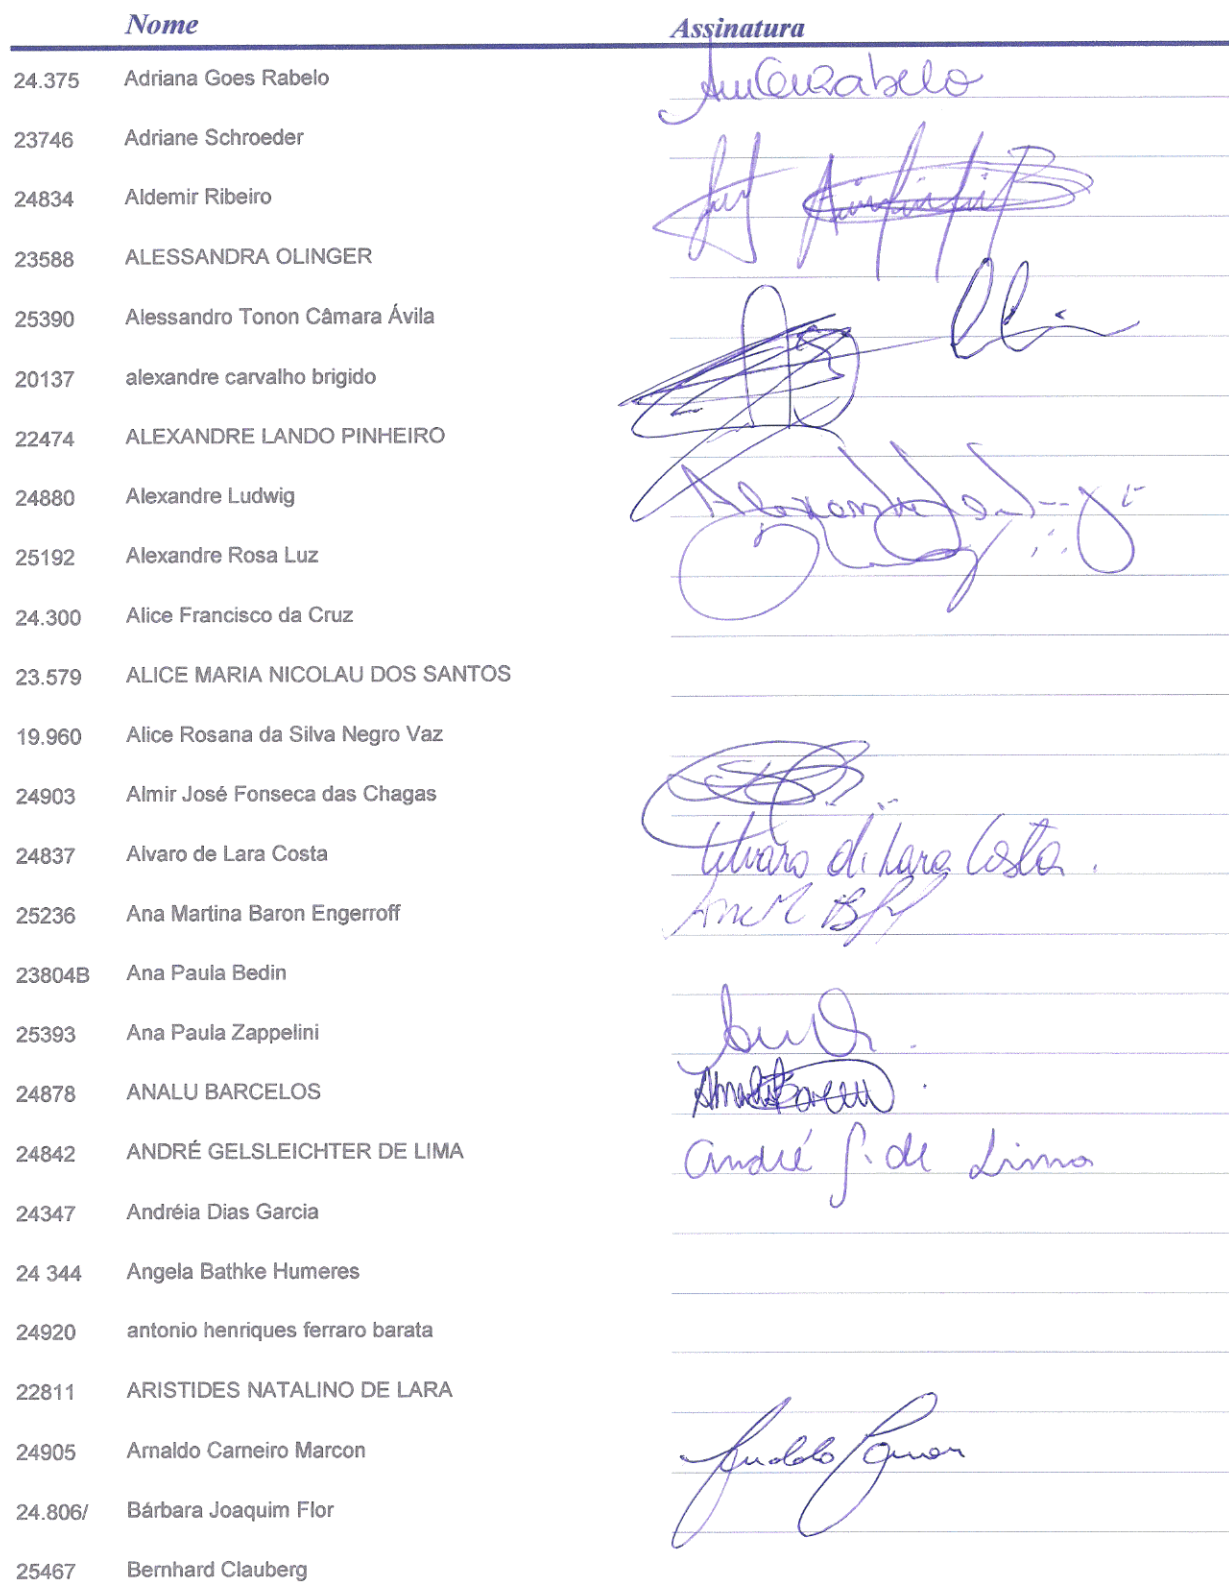 Nome Assinatura
24.375 Adriana Goes Rabelo
23746 Adriane Schroeder
24834 Aldemir Ribeiro
23588 ALESSANDRA OLINGER
25390 Alessandro Tonon Câmara Ávila
20137 alexandre carvalho brigido
22474 ALEXANDRE LANDO PINHEIRO
24880 Alexandre Ludwig
25192 Alexandre Rosa Luz
24.300 Alice Francisco da Cruz
23.579 ALICE MARIA NICOLAU DOS SANTOS
19.960 Alice Rosana da Silva Negro Vaz
24903 Almir José Fonseca das Chagas
24837 Alvaro de Lara Costa Alvaro de Lara Costa.
25236 Ana Martina Baron Engerroff
23804B Ana Paula Bedin
25393 Ana Paula Zappelini
24878 ANALU BARCELOS
24842 ANDRÉ GELSLEICHTER DE LIMA André G. de Lima
24347 Andréia Dias Garcia
24 344 Angela Bathke Humeres
24920 antonio henriques ferraro barata
22811 ARISTIDES NATALINO DE LARA
24905 Arnaldo Carneiro Marcon
24.806/ Bárbara Joaquim Flor
25467 Bernhard Clauberg